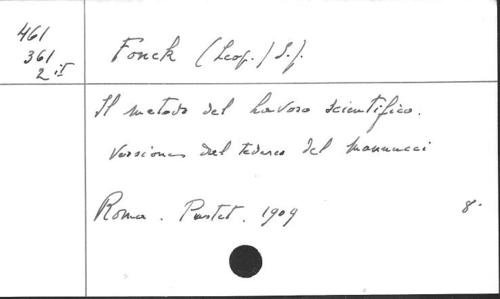 461
361
2 iI
Fonck (Leop.) S.j.
Il metodo del lavoro scientifico.
Versione dal tedesco del Mannucci
Roma. Pustet. 1909 8·